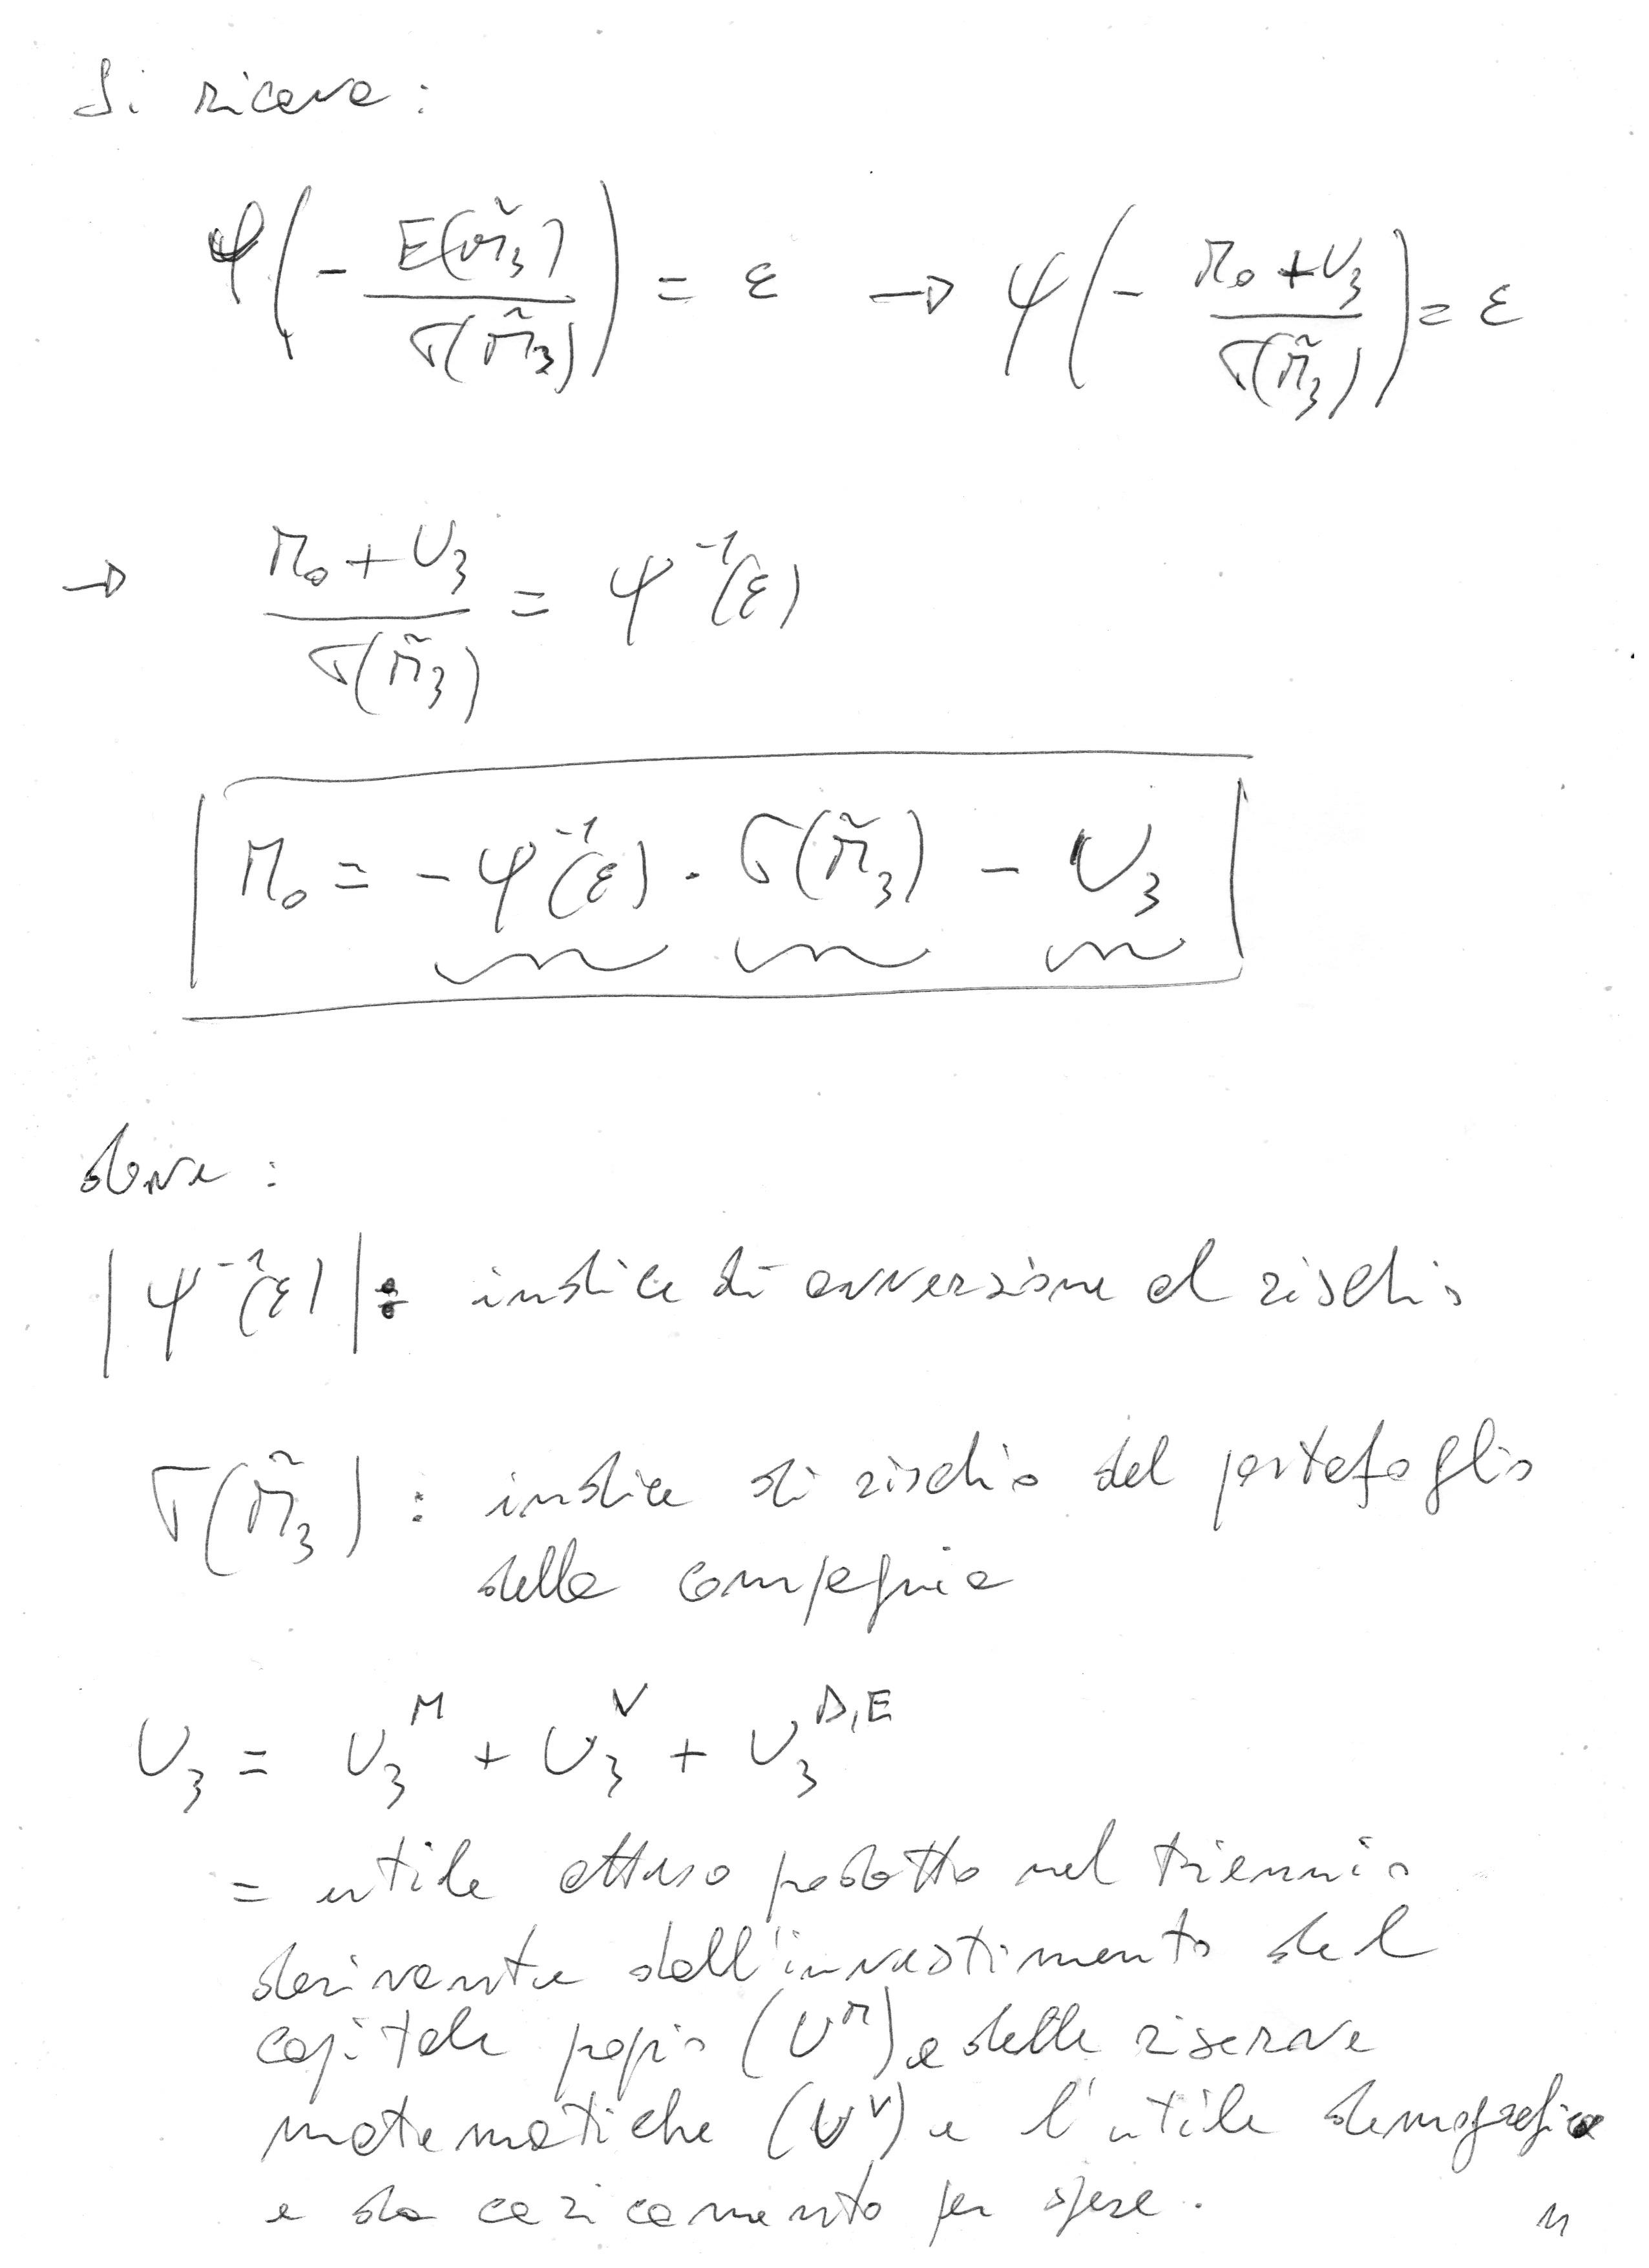 Si ricava:
φ(- E(M̃₃) / σ(M̃₃)) = ε → φ(- M₀ + U₃ / σ(M̃₃)) = ε
→ M₀ + U₃ / σ(M̃₃) = φ⁻¹(ε)
M₀ = - φ⁻¹(ε) · σ(M̃₃) - U₃
dove:
|φ⁻¹(ε)|: indice di avversione al rischio
σ(M̃₃): indice di rischio del portafoglio
della compagnia
U₃ = U₃ᴹ + U₃ⱽ + U₃ᴰ,ᴱ
= utile atteso prodotto nel triennio
derivante dall'investimento del
capitale proprio (Uᴹ) e delle riserve
matematiche (Uⱽ) e l'utile demografico
e da caricamento per spese.